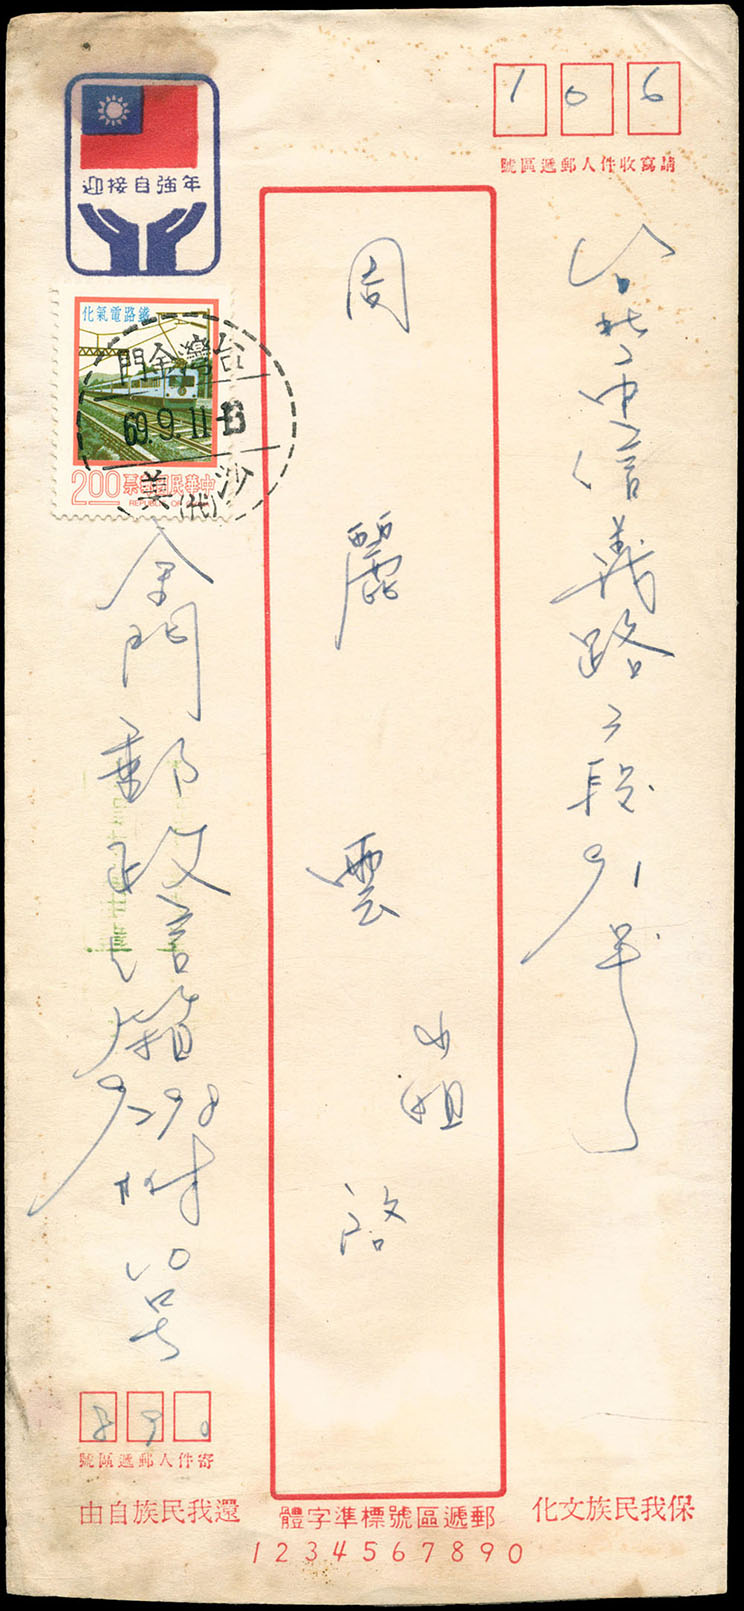 106
請寫收件人郵遞區號
迎接自強年
鐵路電氣化
2.00 中華民國郵票
REPUBLIC OF
台灣金門
69.9.11
沙美
(代)
台北市信義路二段91號
周麗雲小姐 啟
金門郵政信箱
附10号
890
寄件人郵遞區號
保我民族文化
郵遞區號標準字體
1234567890
還我民族自由